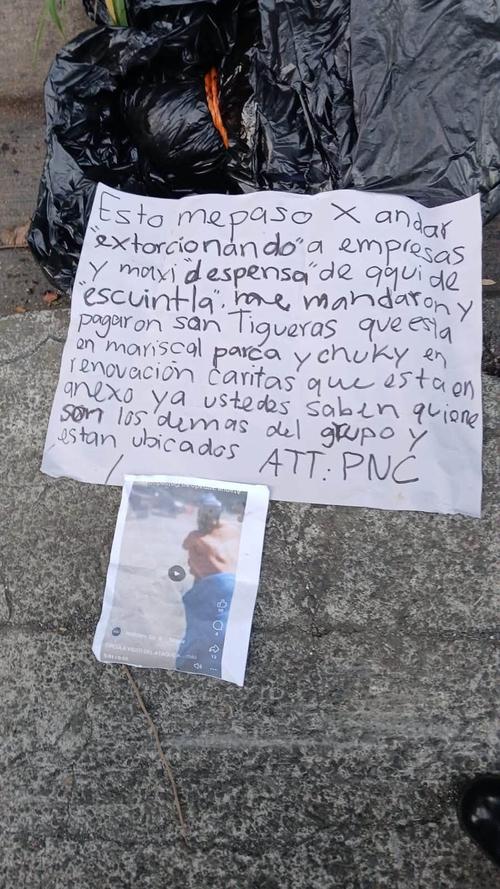 Esto me paso X andar
"extorcionando" a empresas
y maxi "despensa" de aqui de
"escuintla". me mandaron y
pagaron san Tigueras que esta
en mariscal parca y chuky en
renovación caritas que esta en
anexo ya ustedes saben quiene
son los demas del grupo y
estan ubicados ATT: PNC